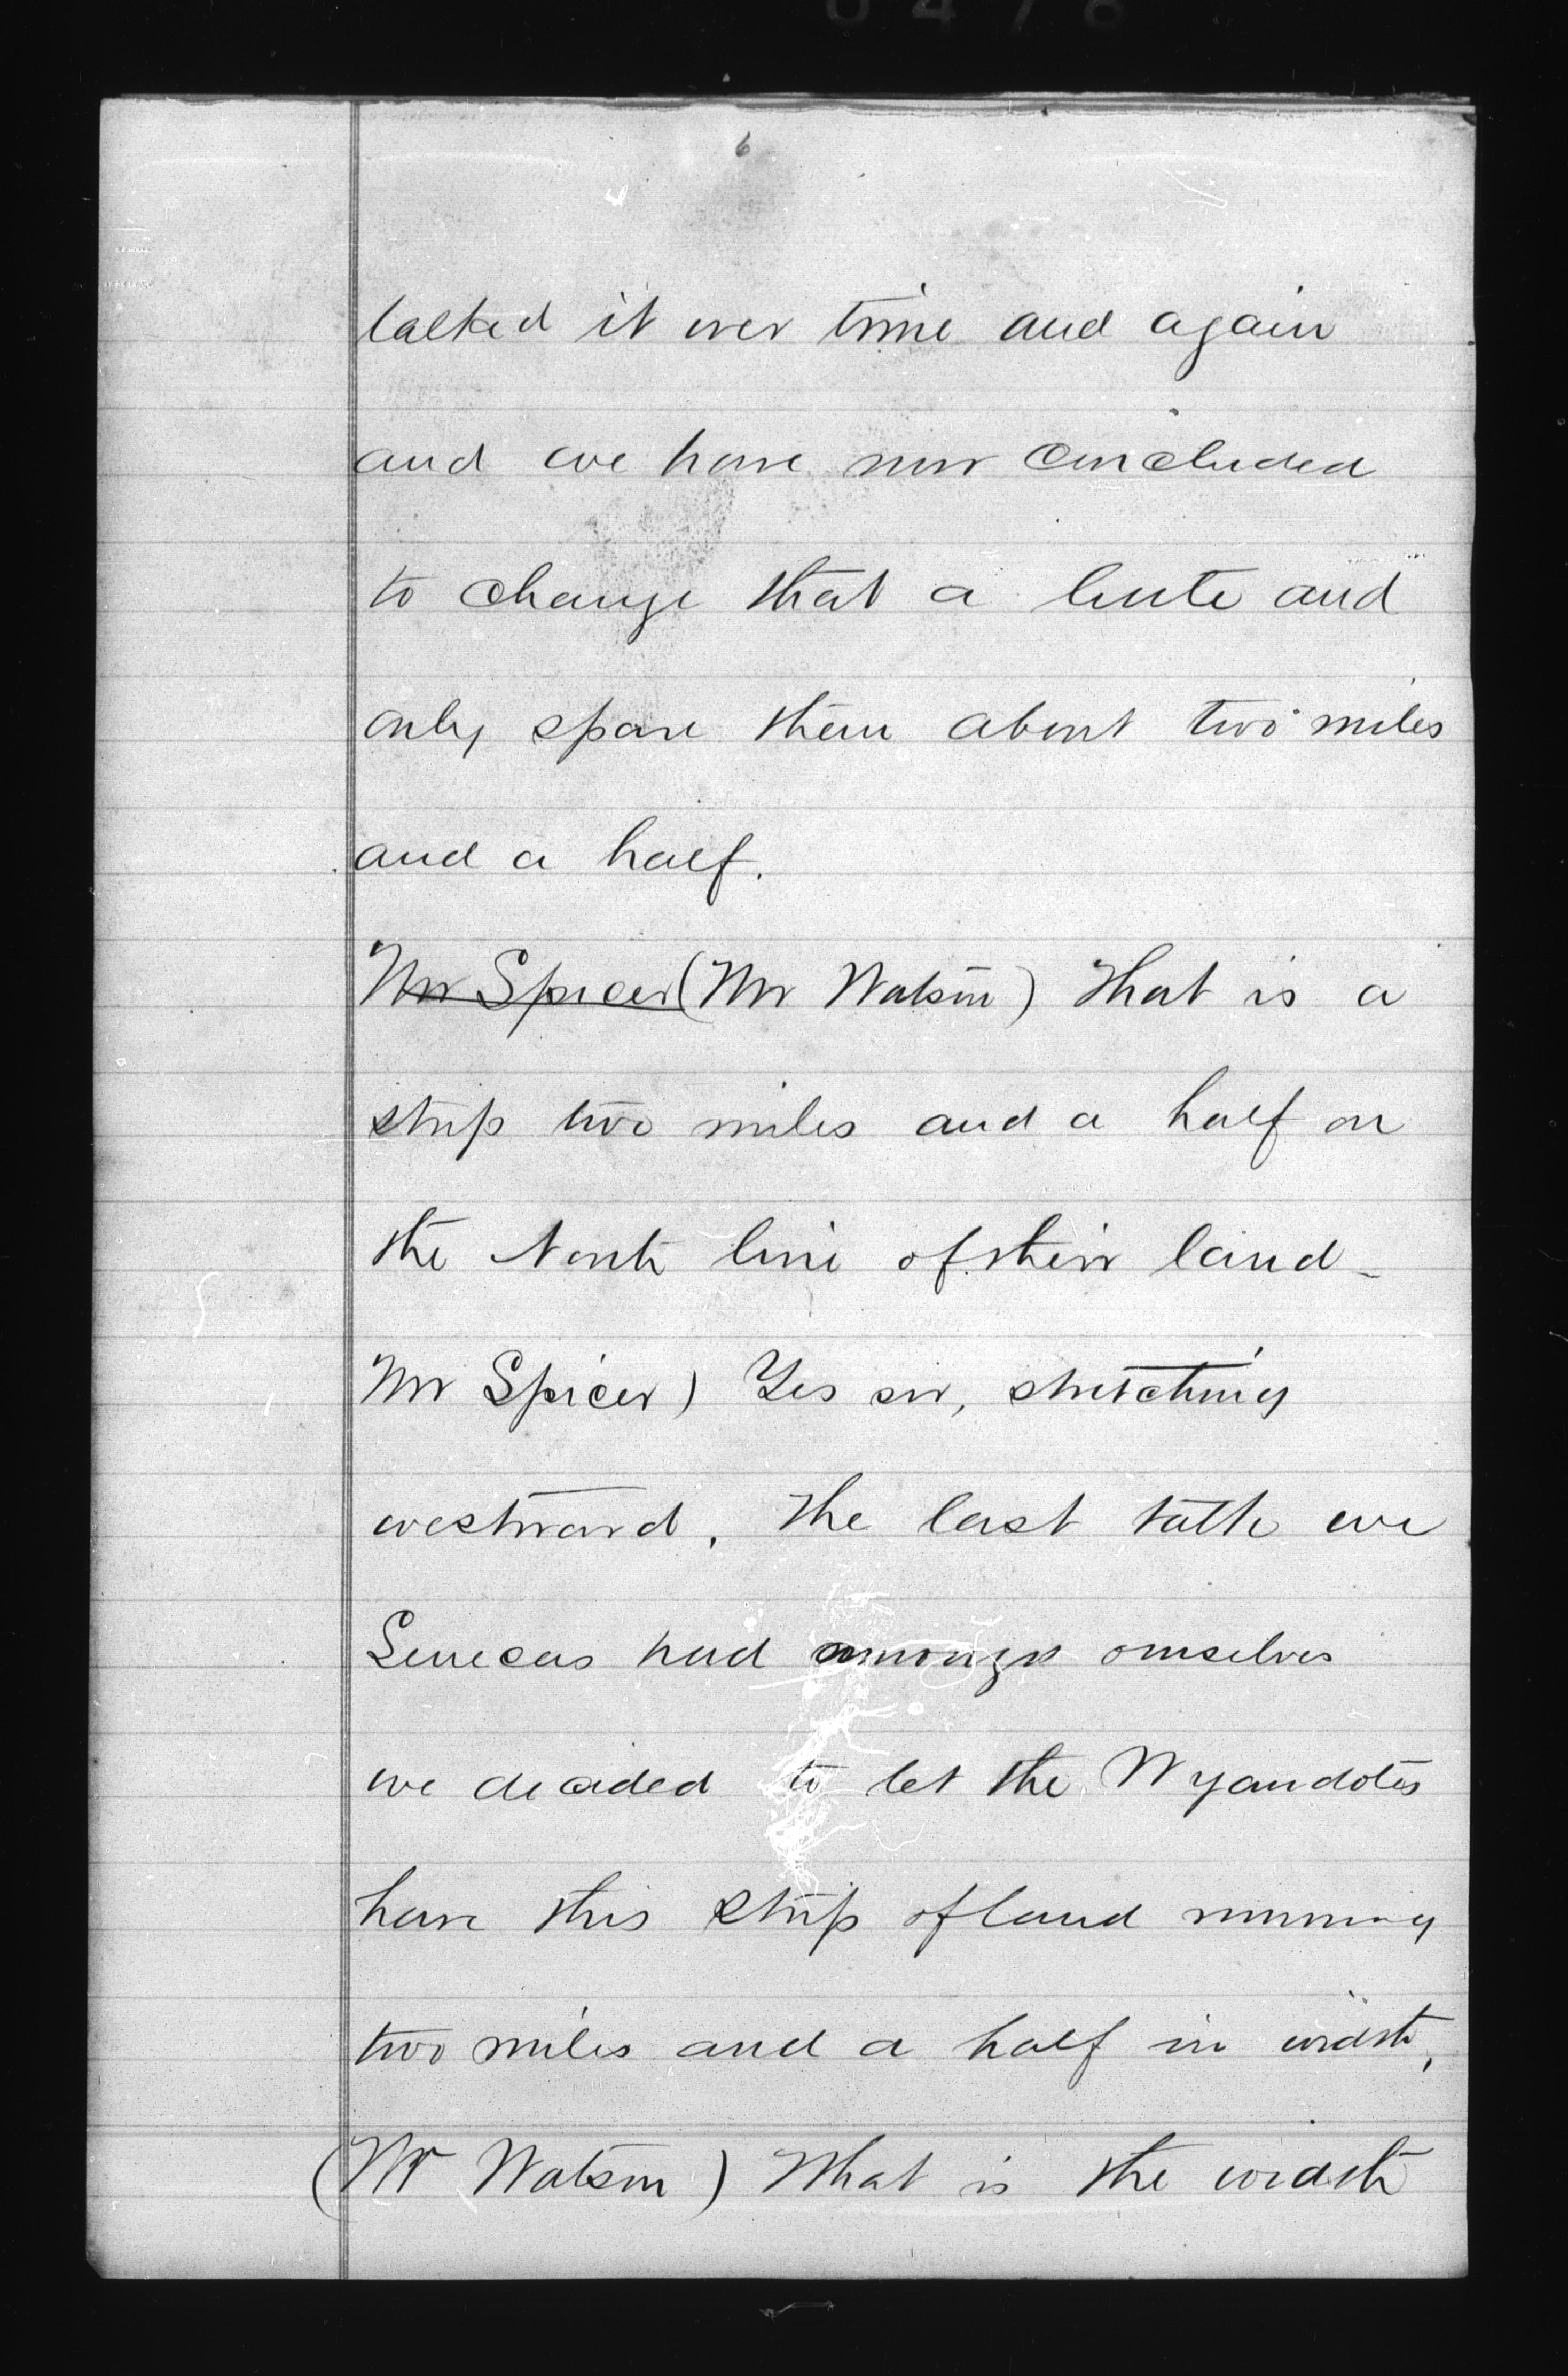 6
talked it over time and again
and we have now concluded
to change that a little and
only spare them about two miles
and a half.
Mr Spicer (Mr Watson) That is a
strip two miles and a half on
the North line of their land_
Mr Spicer) Yes sir, stretching
westward. The last talk we
Senecas had amongst ourselves
we decided to let the Wyandotes
have this strip of land running
two miles and a half in width,
(Mr Watson) What is the width